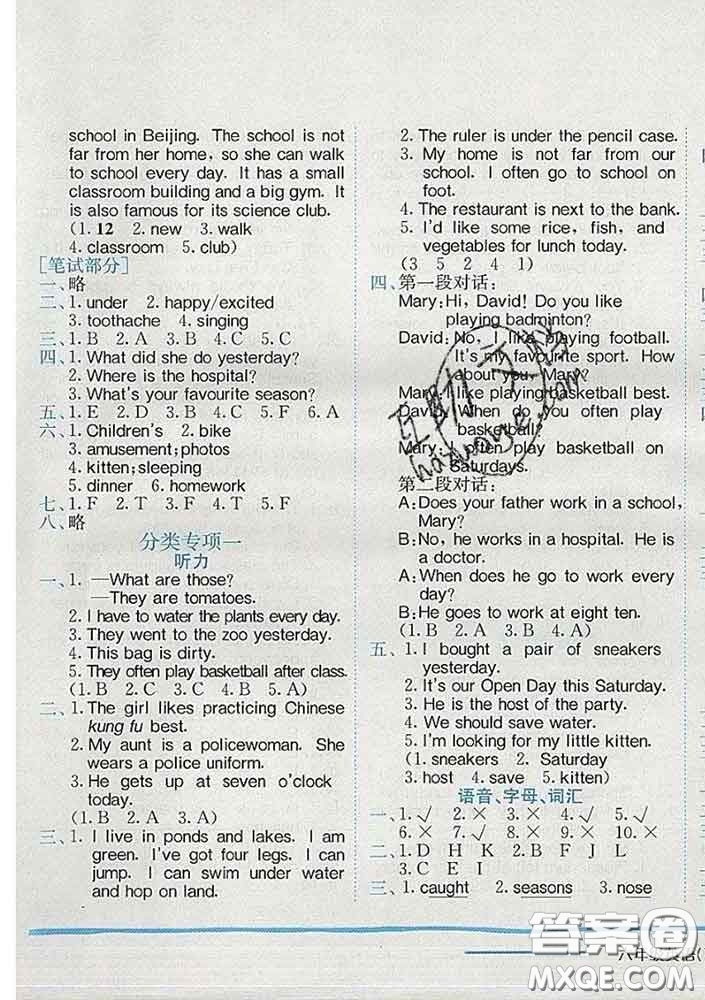 school in Beijing. The school is not
far from her home, so she can walk
to school every day. It has a small
classroom building and a big gym. It
is also famous for its science club.
(1. 12 2. new 3. walk
4. classroom 5. club)
[笔试部分]
一、略
二、1. under 2. happy/excited
3. toothache 4. singing
三、1. B 2. A 3. B 4. C 5. C
四、1. What did she do yesterday?
2. Where is the hospital?
3. What's your favourite season?
五、1. E 2. D 3. B 4. C 5. F 6. A
六、1. Children's 2. bike
3. amusement; photos
4. kitten; sleeping
5. dinner 6. homework
七、1. F 2. T 3. F 4. T 5. F
八、略
分类专项一
听力
一、1. —What are those?
—They are tomatoes.
2. I have to water the plants every day.
3. They went to the zoo yesterday.
4. This bag is dirty.
5. They often play basketball after class.
(1. B 2. A 3. A 4. B 5. A)
二、1. The girl likes practicing Chinese
kung fu best.
2. My aunt is a policewoman. She
wears a police uniform.
3. He gets up at seven o'clock
today.
(1. B 2. A 3. A)
三、1. I live in ponds and lakes. I am
green. I've got four legs. I can
jump. I can swim under water
and hop on land.
2. The ruler is under the pencil case.
3. My home is not far from our
school. I often go to school on
foot.
4. The restaurant is next to the bank.
5. I'd like some rice, fish, and
vegetables for lunch today.
(3 5 2 4 1)
四、第一段对话:
Mary: Hi, David! Do you like
playing badminton?
David: No, I like playing football.
It's my favourite sport. How
about you, Mary?
Mary: I like playing basketball best.
David: When do you often play
basketball?
Mary: I often play basketball on
Saturdays.
第二段对话:
A: Does your father work in a school,
Mary?
B: No, he works in a hospital. He is
a doctor.
A: When does he go to work every
day?
B: He goes to work at eight ten.
(1. B 2. A 3. B 4. A)
五、1. I bought a pair of sneakers
yesterday.
2. It's our Open Day this Saturday.
3. He is the host of the party.
4. We should save water.
5. I'm looking for my little kitten.
(1. sneakers 2. Saturday
3. host 4. save 5. kitten)
语音、字母、词汇
一、1. √ 2. × 3. × 4. √ 5. √
6. × 7. √ 8. × 9. × 10. ×
二、1. D H K 2. B F J L
3. C E I
三、1. caught 2. seasons 3. nose
六年级英语(
答案圈
MXQE.COM